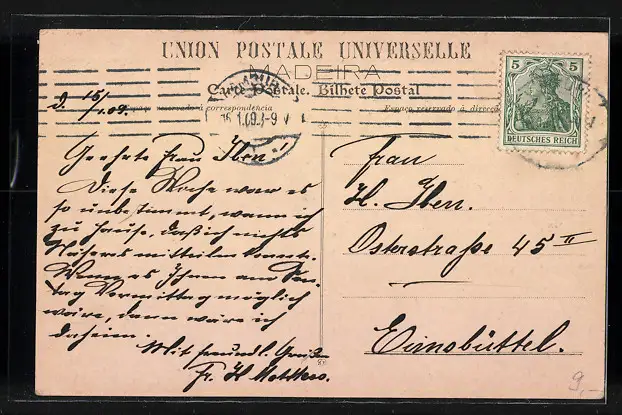 UNION POSTALE UNIVERSELLE
MADEIRA
Carte Postale. Bilhete Postal
Espaço reservado á correspondencia
Espaço reservado á direcção
5 5
DEUTSCHES REICH
16.1.09.8-9 V
d. 15/1.09.
Geehrte Frau Iben!
Diese Woche war es
so unbestimmt, wann ich
zu Hause, daß ich nichts
Näheres mitteilen konnte.
Wenn es Ihnen am Son-
tag Vormittag möglich
wäre, dann wäre ich
daheim.
Mit freundl. Grüßen
Fr. H
Frau
H. Iben.
Osterstraße 45 II
Eimsbüttel.
9,-